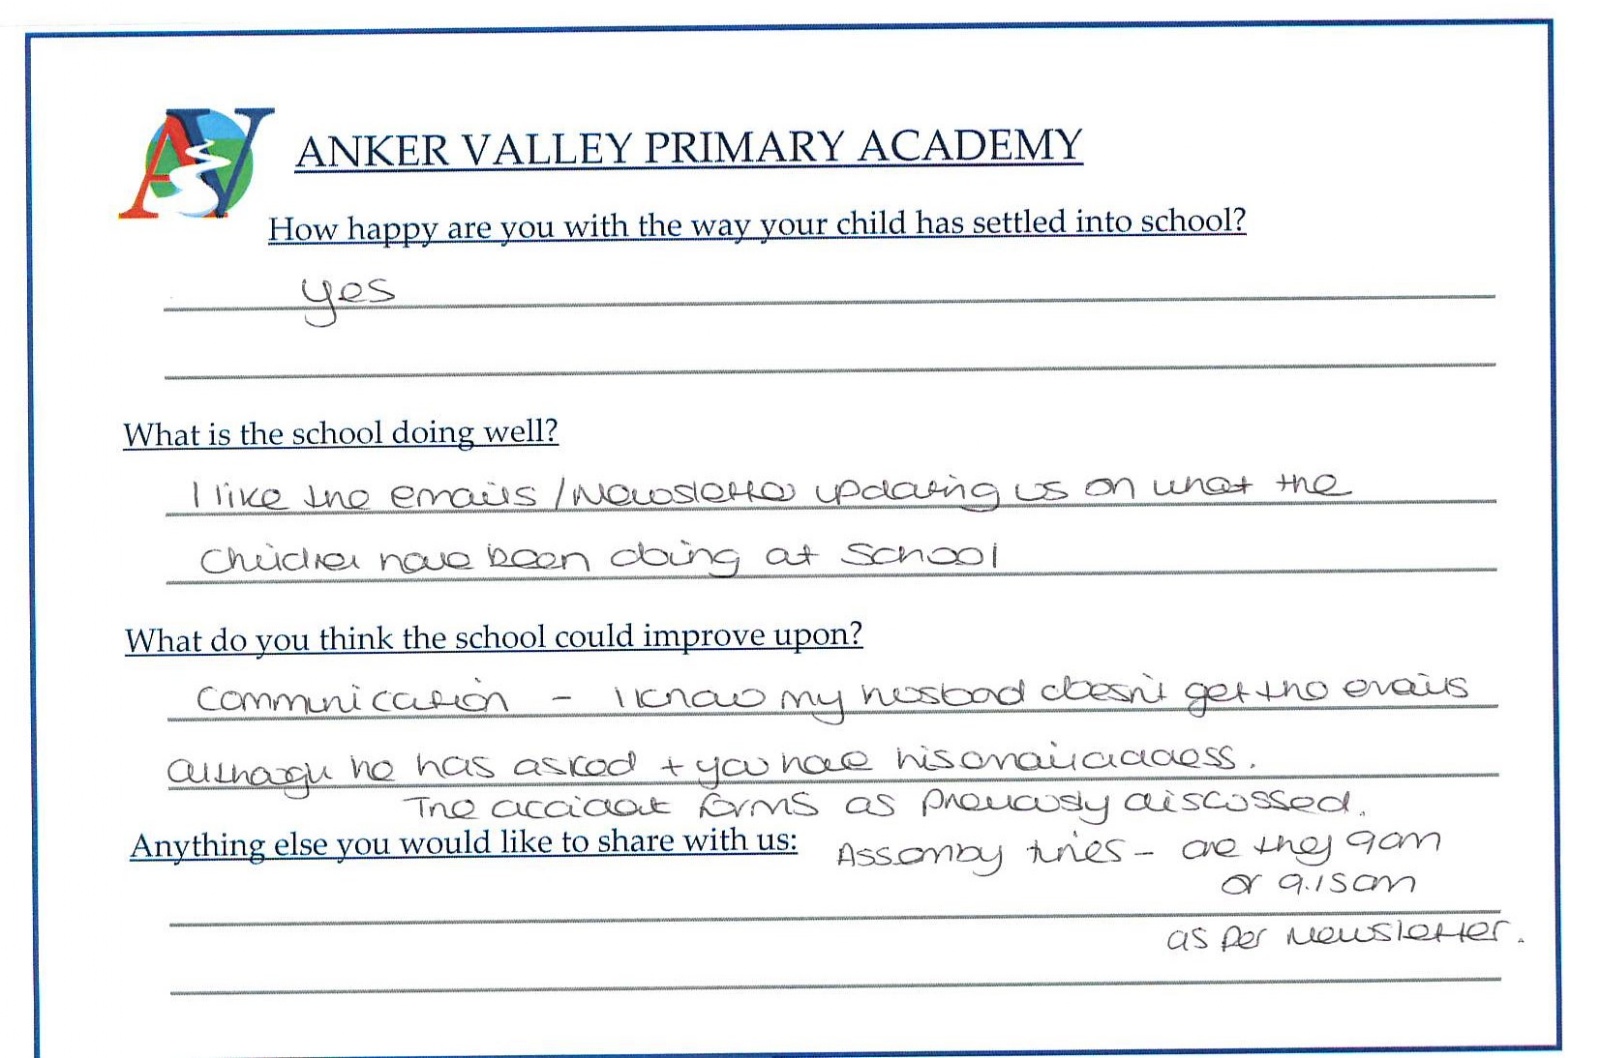 AV
ANKER VALLEY PRIMARY ACADEMY
How happy are you with the way your child has settled into school?
yes
What is the school doing well?
I like the emails / Newsletter updating us on what the
Children have been doing at School
What do you think the school could improve upon?
Communication - I know my husband doesn't get the emails
although he has asked + you have his email address.
The accident forms as previously discussed.
Anything else you would like to share with us: Assembly times - are they 9am
or 9.15am
as per Newsletter.